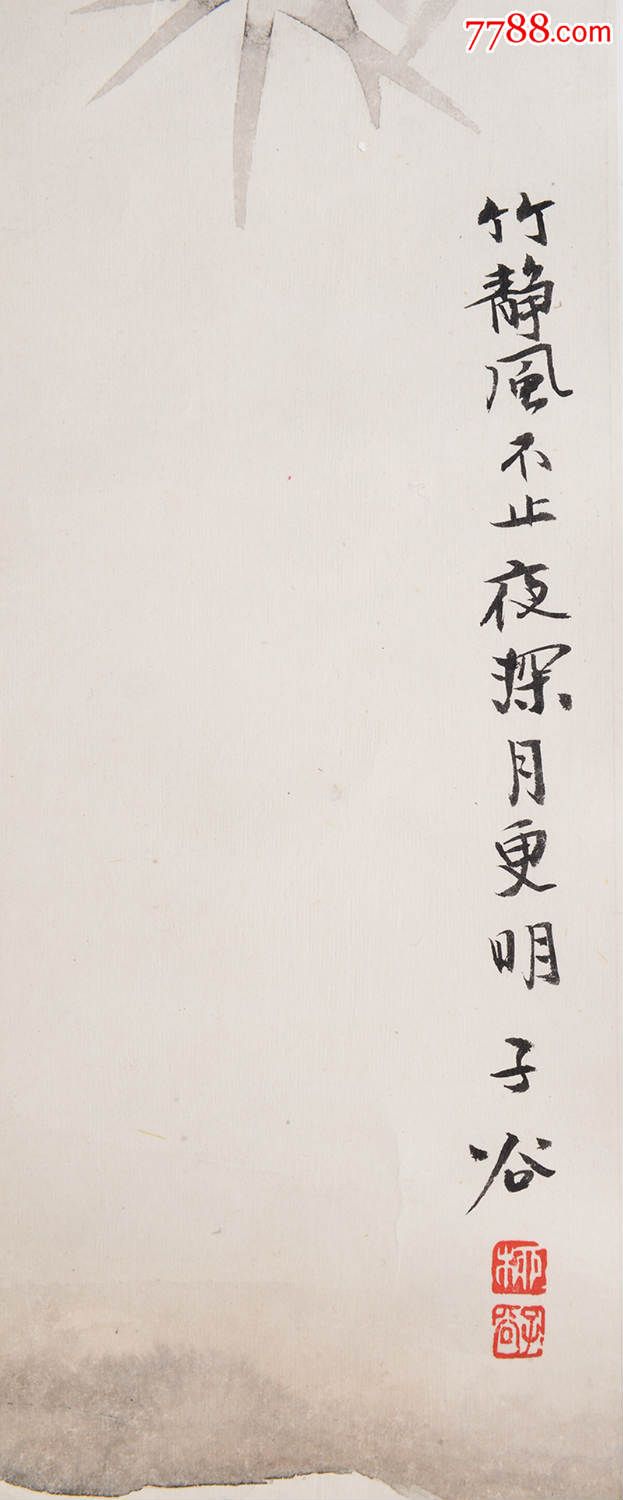 7788.com
竹静風不止夜探月更明 子谷
柳
子谷